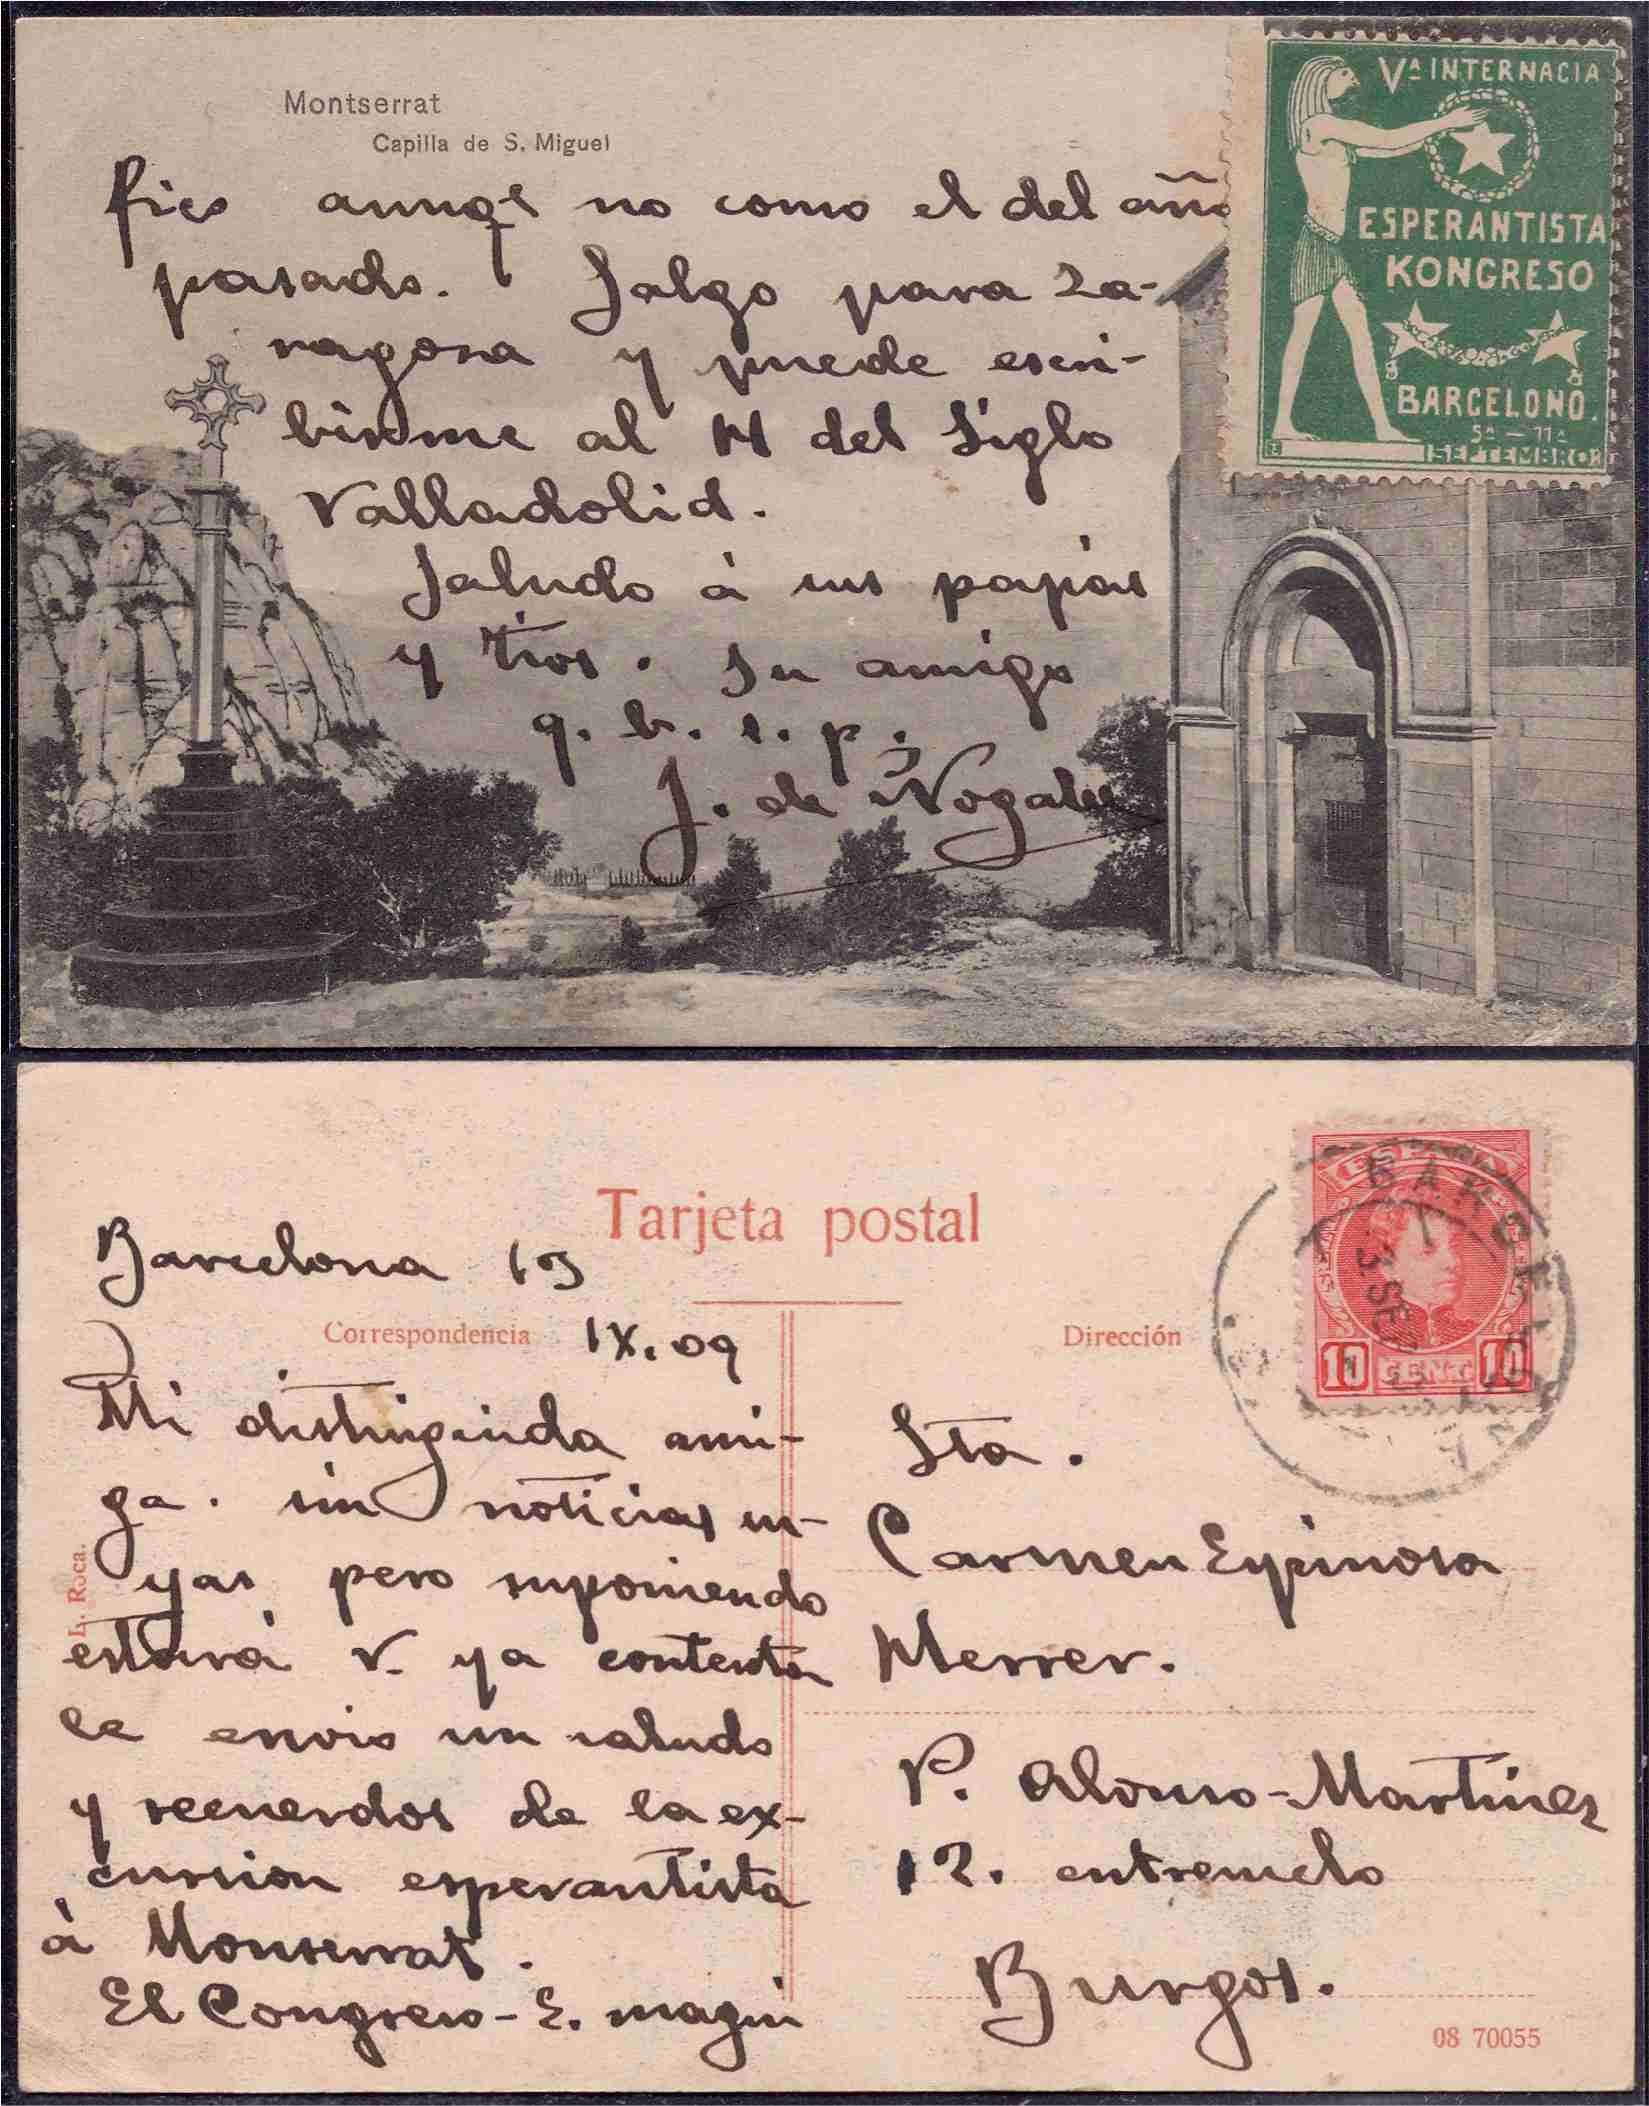 Montserrat
Capilla de S. Miguel
fico aunqe no como el del año
pasado. Salgo para Za-
ragosa y puede escri-
birme al H del Siglo
Valladolid.
Saludo à sus papás
y tios. Su amigo
q. b. s. p.
J. de Nogales
Vª INTERNACIA
ESPERANTISTA
KONGRESO
BARCELONO.
5ª - 11ª
SEPTEMBRO
Tarjeta postal
Barcelona 13
Correspondencia IX. 09
Mi distinguida ami-
ga. sin noticias su-
yas, pero suponiendo
estará V. ya contenta
le envio un saludo
y recuerdos de la ex-
cursion esperantista
à Monserrat.
El Congreso-E. magni
L. Roca.
Dirección
ESPAÑA
10 CENT 10
BARCELONA
Sta.
Carmen Espinosa
P. Alonso-Martinez
12. entresuelo
Burgos.
08 70055